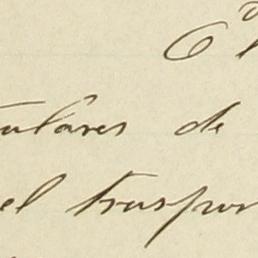 tulares de
el traspor